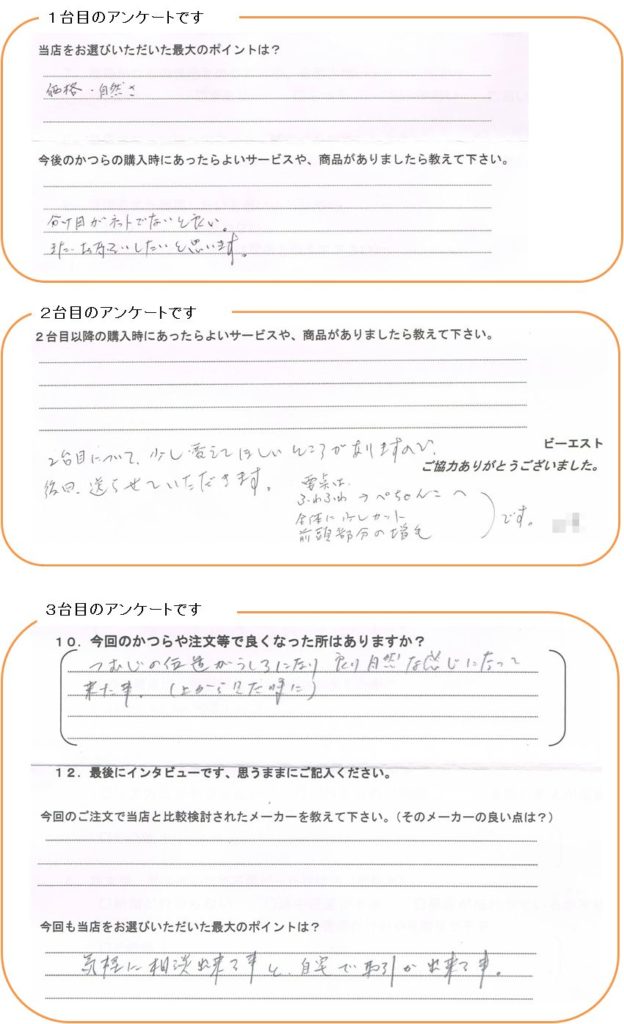 １台目のアンケートです
当店をお選びいただいた最大のポイントは？
価格・自然さ
今後のかつらの購入時にあったらよいサービスや、商品がありましたら教えて下さい。
分け目がネットでないと良い。
また、お願いしたいと思います。
２台目のアンケートです
２台目以降の購入時にあったらよいサービスや、商品がありましたら教えて下さい。
ビーエスト
2台目について、少し変えてほしいところがありますので、
ご協力ありがとうございました。
後日、送らせていただきます。
要点は、
ふわふわ→ぺちゃんこへ
全体に少しカット
です。
前頭部分の増毛
３台目のアンケートです
１０．今回のかつらや注文等で良くなった所はありますか？
つむじの位置がうしろになり より自然な感じになって
来た事。（上から見た時に）
１２．最後にインタビューです、思うままにご記入ください。
今回のご注文で当店と比較検討されたメーカーを教えて下さい。（そのメーカーの良い点は？）
今回も当店をお選びいただいた最大のポイントは？
気軽に相談出来る事と、自宅で取引が出来る事。